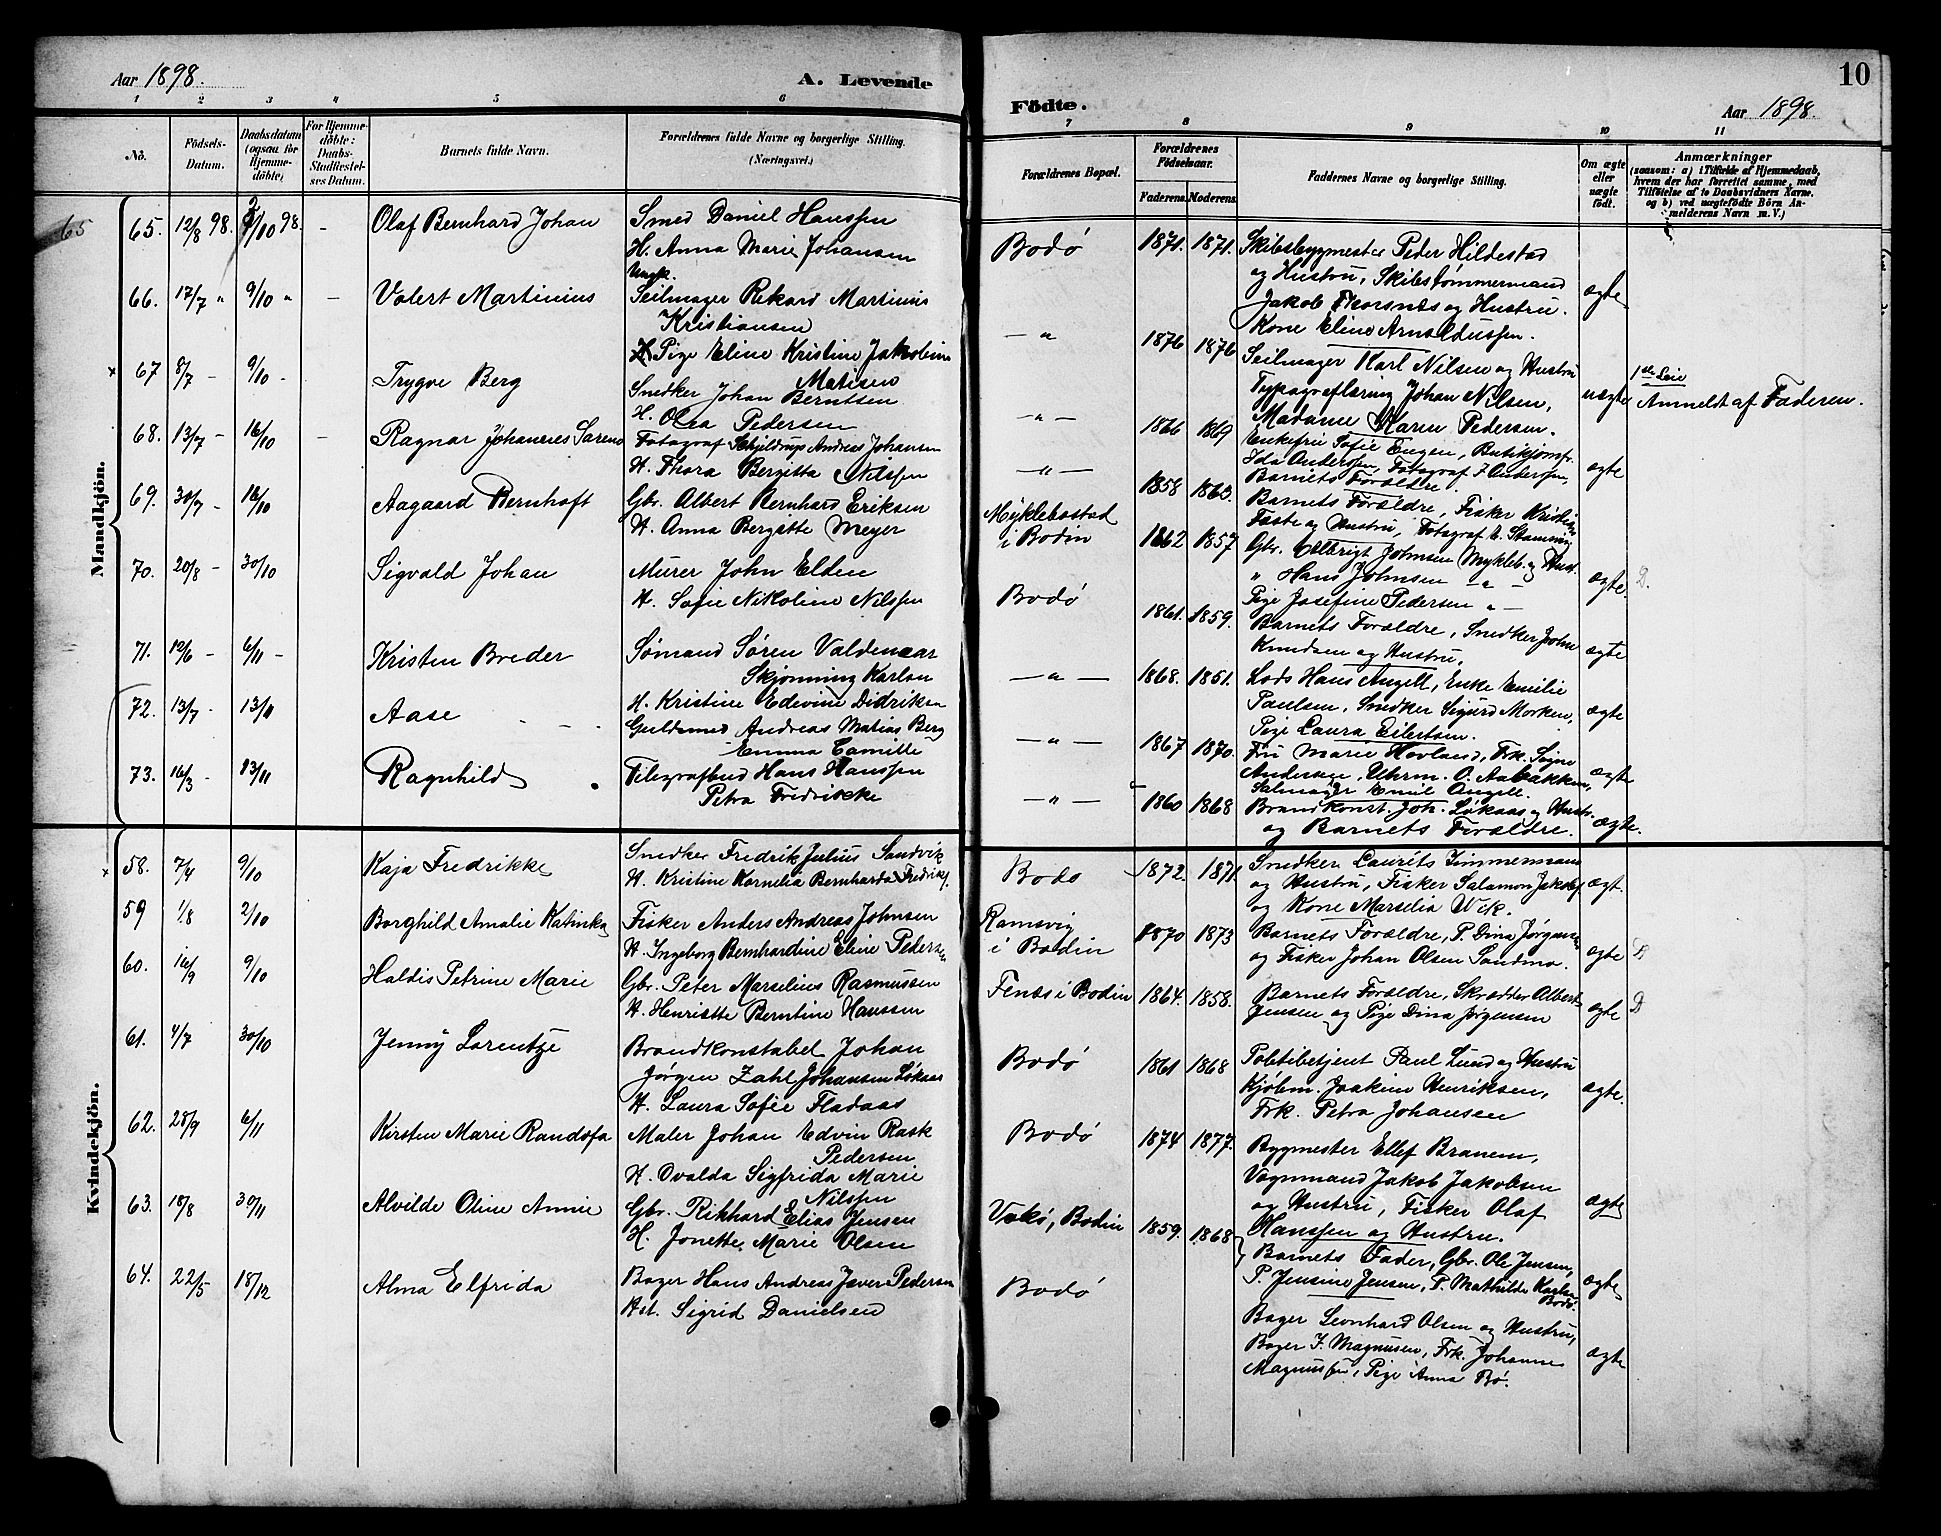 Aar 1898.
A. Levende
1 2 3 4 5 6
No.
Födsels-Datum.
Daabsdatum (ogsaa for Hjemmedöbte)
For Hjemmedöbte: Daabs-Stadfæstelses Datum.
Barnets fulde Navn.
Forældrenes fulde Navne og borgerlige Stilling.
(Næringsvei.)
Mandkjön.
65
65. 12/8 98. /10 98. - Olaf Bernhard Johan Smed Daniel Hanssen
H. Anna Marie Johansen
Ungk.
66. 17/7 " 9/10 " - Valert Martinius Seilmager Rikard Martinius
Kristiansen
Pige Eline Kristine Jakobine
Matisen
67 8/7 - 9/10 - Trygve Berg Snedker Johan Berntsen
H. Olea Pedersen
68. 13/7 - 16/10 - Ragnar Johannes Fotograf Schjeldrup Andreas Johansen
H. Thora Bergitta Nilssen
69. 30/7 - 16/10 Aagaard Bernhoft Gbr. Albert Bernhard Eriksen
H. Anna Bergitte Meyer
70. 20/8 - 30/10 Sigvald Johan Murer John Elden
H. Sofie Nikoline Nilssen
71. 12/6 - 6/11 - Kristen Breder Sømand Søren Valdemar
Skjønning Karlsen
H. Kristine Edevine Didriksen
72. 13/7 - 13/11 Aase Guldsmed Andreas Matias Berg
Emma Camille
73. 16/3 - 13/11 Ragnhild Telegrafbud Hans Hanssen
Petra Fredrikke
Kvindekjön.
58. 7/4 9/10 Kaja Fredrikke Snedker Fredrik Julius Sandvik
H. Kristine Kornelia Bernharda Fredriks.
59 1/8 2/10 Borghild Amalie Katinka Fisker Anders Andreas Johnsen
H. Ingeborg Bernhardine Eline Pedersen
60. 16/9 9/10 Haldis Petrine Marie Gbr. Peter Marselius Rasmussen
H. Henriette Berntine Hanssen
61. 4/7 30/10 Jenny Lorentze Brandkonstabel Johan
Jørgen Zahl Johansen Løkaas
H. Laura Sofie Fladaas
62. 28/9 6/11 Kirsten Marie Randsfa Maler Johan Edvin Rask
Pedersen
H. Ovalda Sigfrida Marie
Nilssen
63. 18/8 30/11 Alvilde Oline Annie Gbr. Rikhard Elias Jensen
H. Jonette Marie Olsen
64. 22/5 18/12 Alma Elfrida Bager Hans Andreas Jæver Pedersen
Hst. Sigrid Danielsen
10
Födte.
Aar 1898.
7 8 9 10 11
Forældrenes Bopæl.
Forældrenes Födselsaar.
Faderens. Moderens.
Faddernes Navne og borgerlige Stilling.
Om ægte eller uægte födt.
Anmærkninger
(saasom: a) i Tilfælde af Hjemmedaab, hvem der har forrettet samme, med Tilföielse af to Daabsvidners Navne. og b) ved uægtefödte Börn Anmelderens Navn m. V.)
Bodø 1871. 1871. Skibsbygmester Peder Hildestad
og Hustru, Skibstømmermand
Jakob Thorsnes og Hustru. ægte
Kone Eline Arnoldussen.
— " 1876 1876 Seilmager Karl Nilsen og Hustru
Typografläring Johan Nilsen, uægte 1ste Leie
Anmeldt af Faderen.
Madame Maren Pedersen.
— " — 1866 1869 Enkefru Sofie Engen, Butikjomfr.
Ida Anderssen, Fotograf J. Anderssen, ægte
Barnets Forældre.
— " — 1858 1863. Barnets Forældre, Fisker Kristian
Faste og Hustru, Fotograf E. Stamming
Myklebostad
i Bodin 1862 1857 Gbr. Elbrigt Johnsen Mykleb. og Hust.
" Hans Johnsen — " — ægte. D.
Pige Josefine Pedersen " —
Bodø 1861. 1859. Barnets Forældre, Snedker John
Knudsen og Hustru. ægte
— " — 1868. 1851. Lods Hans Angell, Enke Emilie
Paulsen, Snedker Sigurd Morken, ægte
Pige Laura Eilertsen.
— " — 1867 1870. Fru Marie Hovland, Frk. Signe
Andersen, Uhrm. O. Aabakken, ægte
Salmager Emil Angell.
— " — 1860 1868 Brandkonst. Joh. Løkaas og Hustr.
og Barnets Forældre. ægte.
Bodø 1872. 1871. Snedker Laurits Zimmermann
og Hustru, Fisker Salamon Jakobs. ægt.
og Kone Marselia Wik.
Ramsvig
i Bodin 1870 1873 Barnets Forældre, P. Dina Jørgensen
og Fisker Johan Olsen Sandmo. ægte D
Fenes i Bodin 1864. 1858. Barnets Forældre, Skrædder Albert
Jensen og Pige Dina Jørgensen ægte D
Bodø 1861 1868 Politibetjent Paul Lund og Hustru
Kjøbm. Joakim Henriksen, ægte.
Frk. Petra Johansen
Bodø 1874 1877. Bygmester Ellef Branem,
Vognmand Jakob Jakobsen
og Hustru, Fisker Olaf ægte
Hanssen og Hustru.
Bodin 1859. 1868 Barnets Fader, Gbr. Ole Jensen,
P. Jensine Jensen, P. Mathilde Karlsen ægte
Bodø.
Bodø Bager Leonhard Olsen og Hustru,
Bager J. Magnusen, Frk. Johanne ægte
Magnussen, Pige Anna Bø.